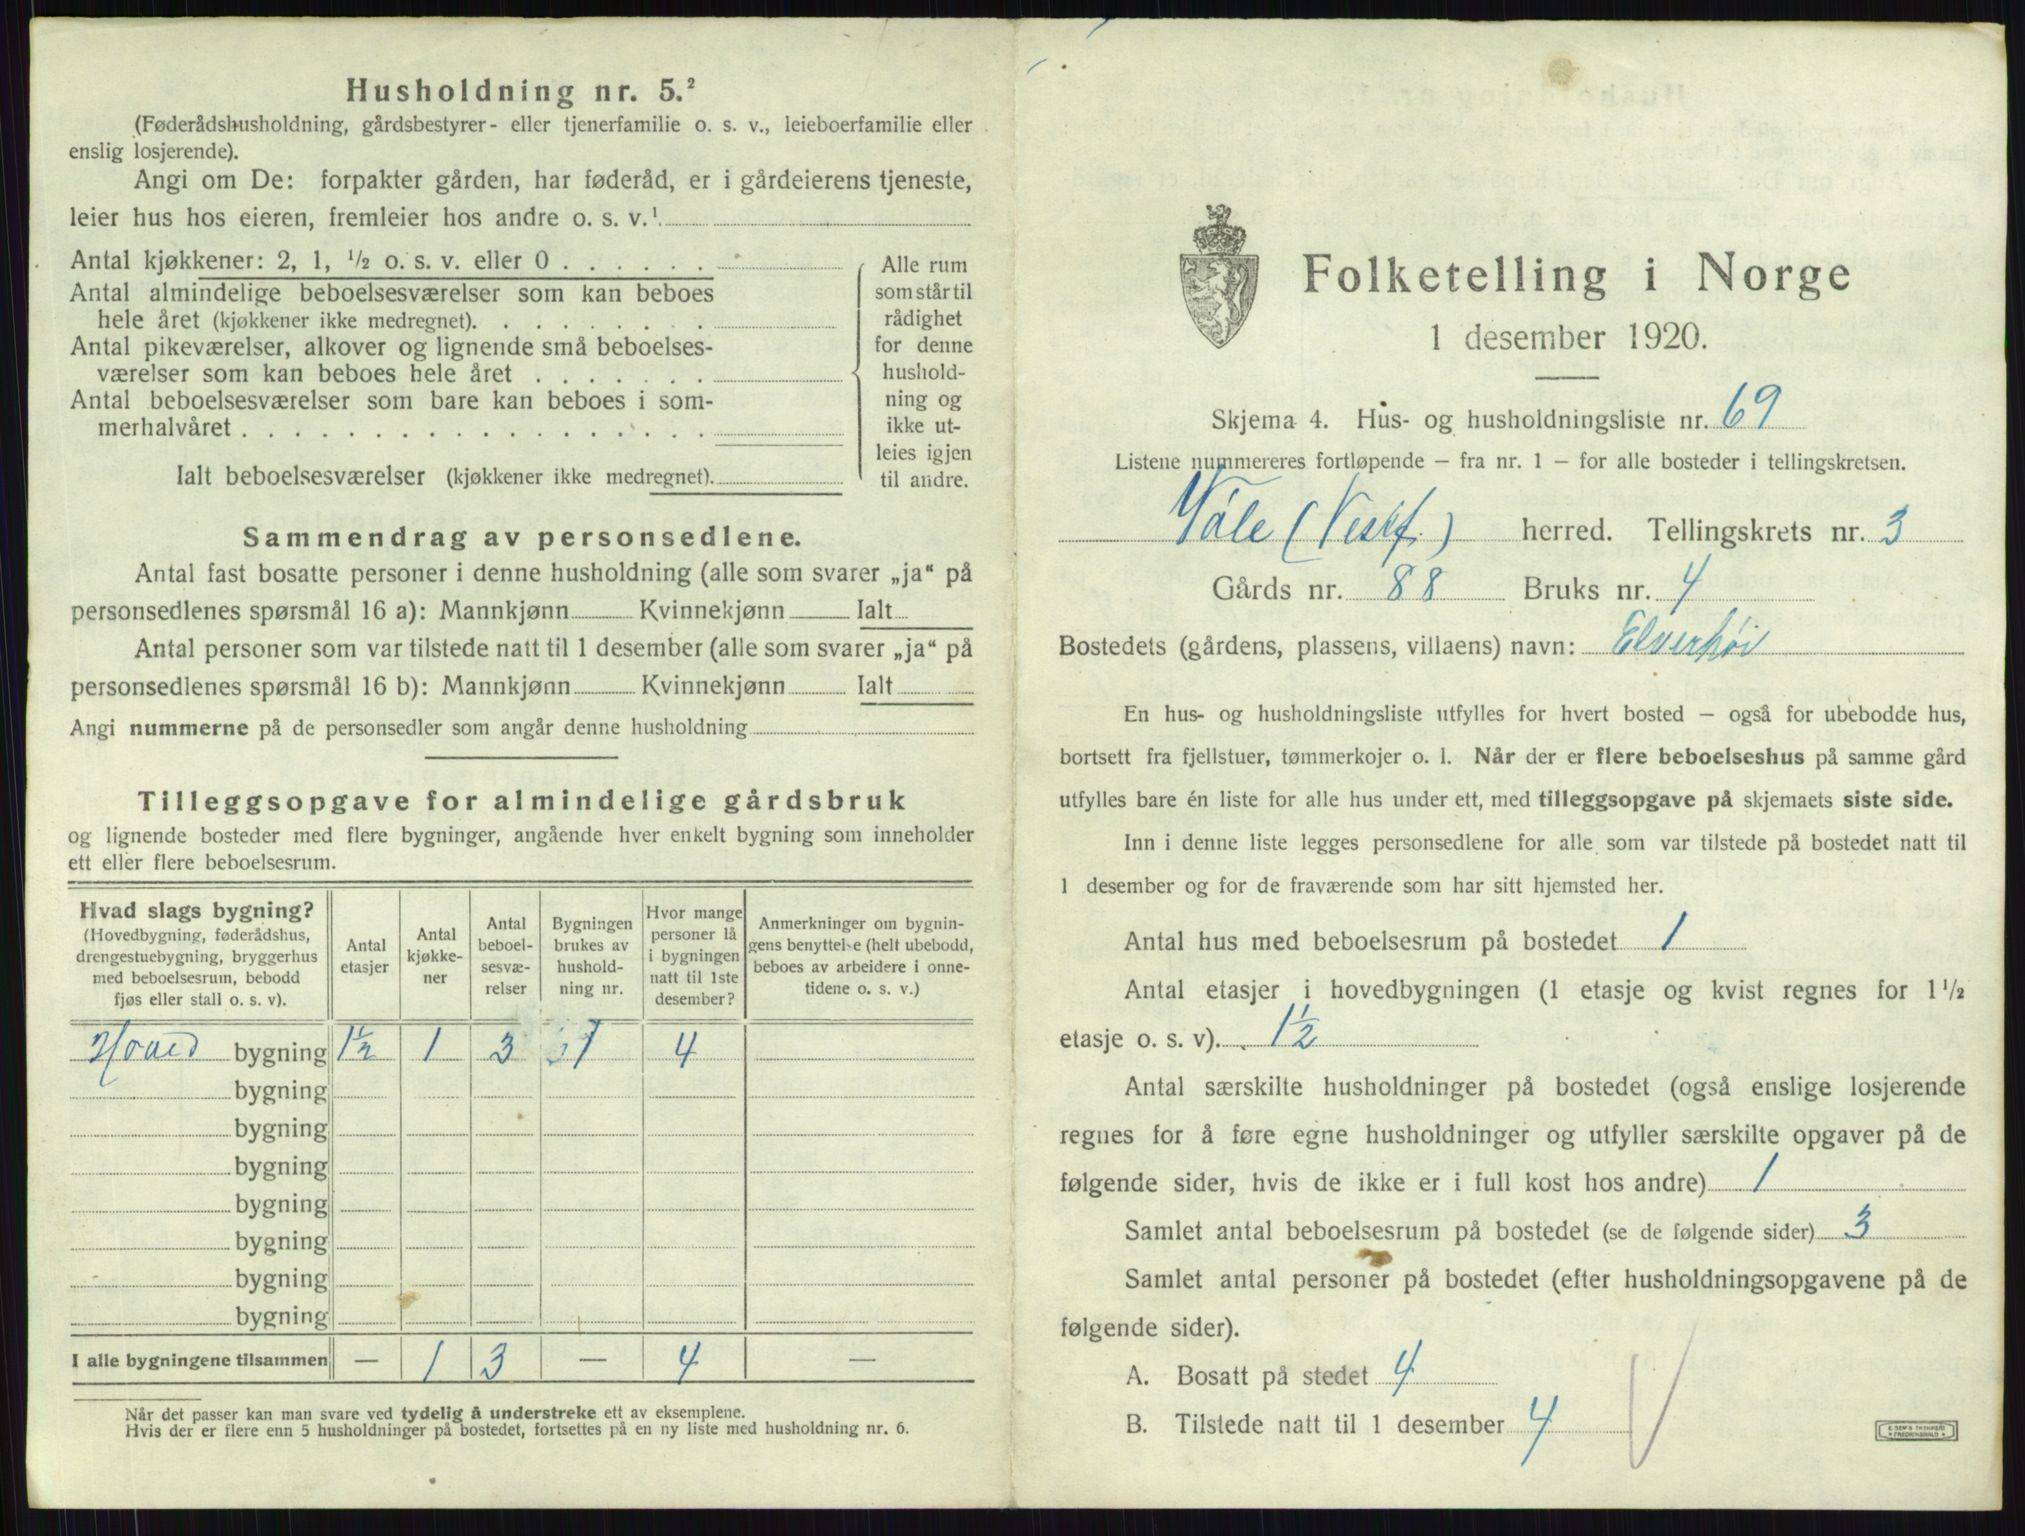 Husholdning nr. 5.²
(Føderådshusholdning, gårdsbestyrer- eller tjenerfamilie o. s. v., leieboerfamilie eller
enslig losjerende).
Angi om De: forpakter gården, har føderåd, er i gårdeierens tjeneste,
leier hus hos eieren, fremleier hos andre o. s. v.¹
Antal kjøkkener: 2, 1, ½ o. s. v. eller 0 . . . . . .
Antal almindelige beboelsesværelser som kan beboes
hele året (kjøkkener ikke medregnet). . . . . . . . .
Antal pikeværelser, alkover og lignende små beboelses-
værelser som kan beboes hele året . . . . . . .
Antal beboelsesværelser som bare kan beboes i som-
merhalvåret . . . . . . . . . . . . . . . . . .
Ialt beboelsesværelser (kjøkkener ikke medregnet).
Alle rum
som står til
rådighet
for denne
hushold-
ning og
ikke ut-
leies igjen
til andre.
Sammendrag av personsedlene.
Antal fast bosatte personer i denne husholdning (alle som svarer „ja“ på
personsedlenes spørsmål 16 a): Mannkjønn Kvinnekjønn Ialt
Antal personer som var tilstede natt til 1 desember (alle som svarer „ja“ på
personsedlenes spørsmål 16 b): Mannkjønn Kvinnekjønn Ialt
Angi nummerne på de personsedler som angår denne husholdning
Tilleggsopgave for almindelige gårdsbruk
og lignende bosteder med flere bygninger, angående hver enkelt bygning som inneholder
ett eller flere beboelsesrum.
Hvad slags bygning?
(Hovedbygning, føderådshus,
drengestuebygning, bryggerhus
med beboelsesrum, bebodd
fjøs eller stall o. s. v).
Antal
etasjer
Antal
kjøkke-
ner
Antal
beboel-
sesvæ-
relser
Bygningen
brukes av
hushold-
ning nr.
Hvor mange
personer lå
i bygningen
natt til 1ste
desember?
Anmerkninger om bygnin-
gens benyttelse (helt ubebodd,
beboes av arbeidere i onne-
tidene o. s. v.)
Hoved bygning 1½ 1 3 1 4
bygning
bygning
bygning
bygning
bygning
bygning
bygning
I alle bygningene tilsammen — 1 3 — 4 —
Når det passer kan man svare ved tydelig å understreke ett av eksemplene.
Hvis der er flere enn 5 husholdninger på bostedet, fortsettes på en ny liste med husholdning nr. 6.
Folketelling i Norge
1 desember 1920.
Skjema 4. Hus- og husholdningsliste nr. 69
Listene nummereres fortløpende – fra nr. 1 – for alle bosteder i tellingskretsen.
Våle (Vestf.) herred. Tellingskrets nr. 3
Gårds nr. 88 Bruks nr. 4
Bostedets (gårdens, plassens, villaens) navn: Elverhøi
En hus- og husholdningsliste utfylles for hvert bosted – også for ubebodde hus,
bortsett fra fjellstuer, tømmerkojer o. l. Når der er flere beboelseshus på samme gård
utfylles bare én liste for alle hus under ett, med tilleggsopgave på skjemaets siste side.
Inn i denne liste legges personsedlene for alle som var tilstede på bostedet natt til
1 desember og for de fraværende som har sitt hjemsted her.
Antal hus med beboelsesrum på bostedet 1
Antal etasjer i hovedbygningen (1 etasje og kvist regnes for 1½
etasje o. s. v). 1½
Antal særskilte husholdninger på bostedet (også enslige losjerende
regnes for å føre egne husholdninger og utfyller særskilte opgaver på de
følgende sider, hvis de ikke er i full kost hos andre) 1
Samlet antal beboelsesrum på bostedet (se de følgende sider) 3
Samlet antal personer på bostedet (efter husholdningsopgavene på de
følgende sider).
A. Bosatt på stedet 4
B. Tilstede natt til 1 desember 4